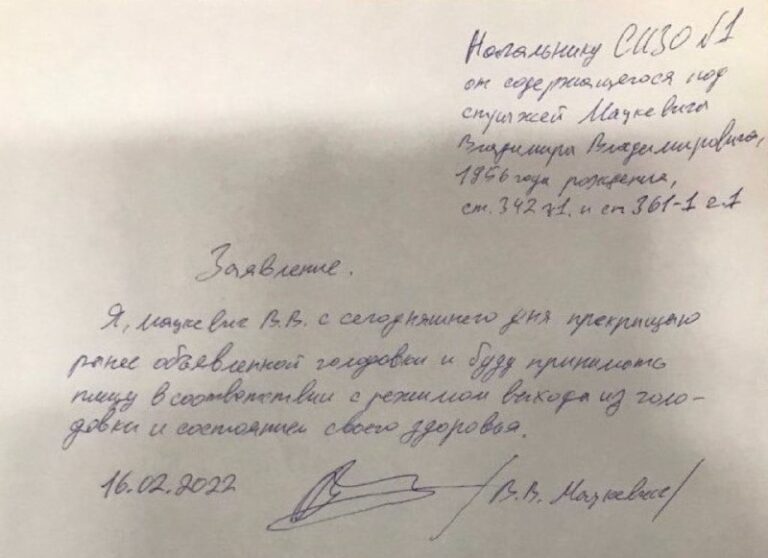 Начальнику СИЗО №1
от содержащегося под
стражей Мацкевича
Владимира Владимировича,
1956 года рождения,
ст. 342 ч1. и ст 361-1 ч.1
Заявление.
Я, Мацкевич В.В. с сегодняшнего дня прекращаю
ранее объявленной голодовки и буду принимать
пищу в соответствии с режимом выхода из голо-
довки и состоянием своего здоровья.
16.02.2022 /В.В. Мацкевич/